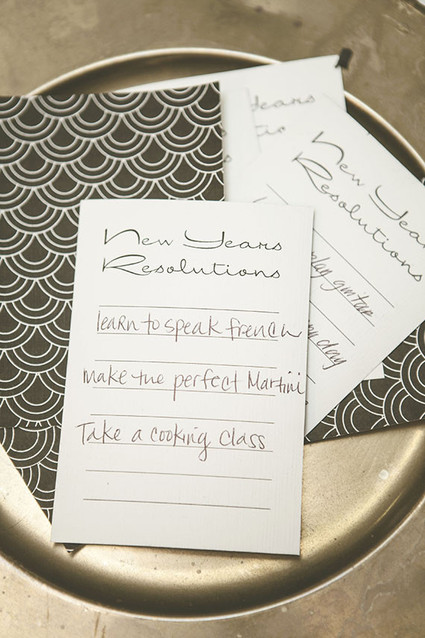 New Years
Resolutions
learn to speak french
make the perfect Martini
Take a cooking class
Years
New Years
Resolutions
guitar
day